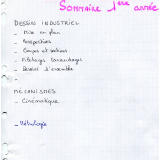 Sommaire 1ère année
DESSIN INDUSTRIEL
- Mise en plan
- Perspectives
- Coupes et sections
- Filetages taraudages
- Dessin d'ensemble
MÉCANISMES
- Cinématique
- Métrologie